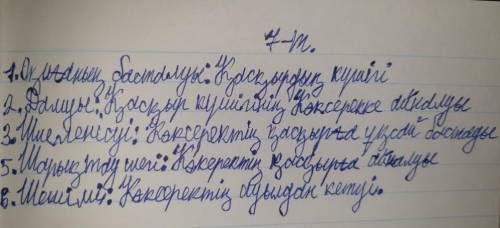 7-т.
1. Оқиғаның басталуы: Қасқырдың күшігі
2. Дамуы: Қасқыр күшігінің Көксерекке айналуы
3. Шиеленесуі: Көксеректің қасқырға ұқсай бастауы
5. Шарықтау шегі: Көксеректің қасқырға айналуы
6. Шешімі: Көксеректің ауылдан кетуі.